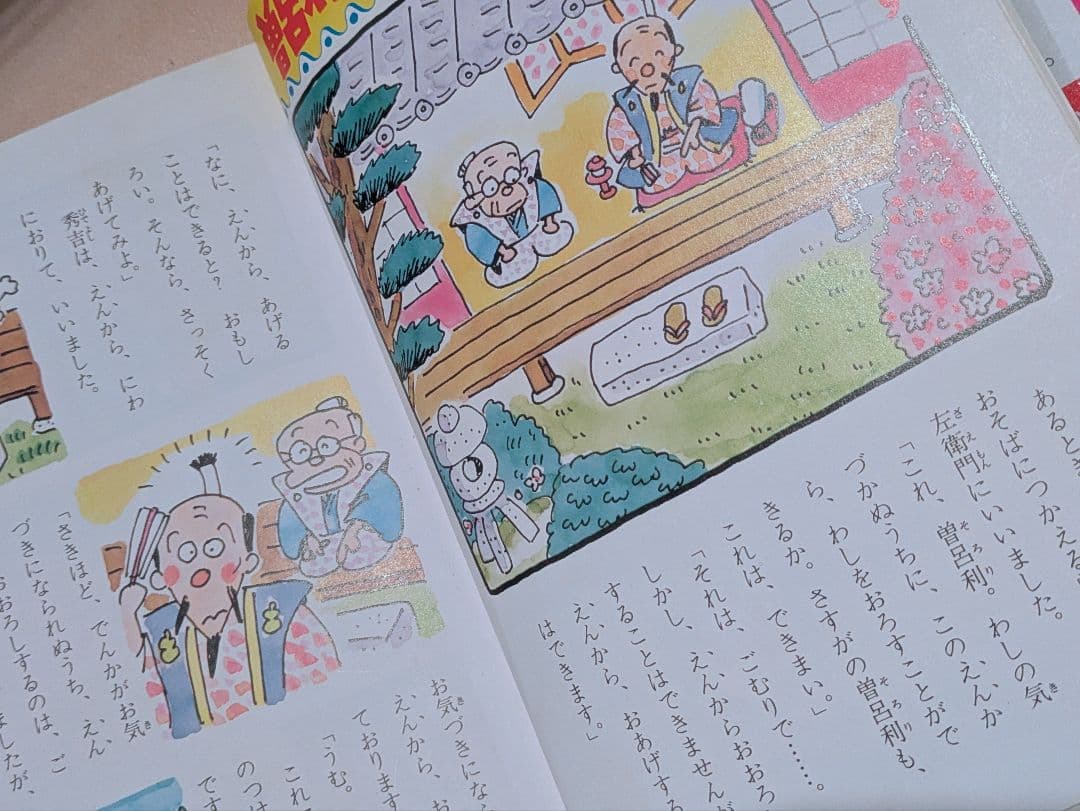 曽呂
あるとき
おそばにつかえる
左衛門にいいました。
「これ、曽呂利。わしの気
づかぬうちに、このえんか
ら、わしをおろすことがで
きるか。さすがの曽呂利も、
これは、できまい。」
「それは、ごむりで……。
しかし、えんからおおろ
することはできませんが
えんから、おあげする
はできます。」
「なに、えんから、あげる
ことはできると？　おもし
ろい。そんなら、さっそく
あげてみよ。」
秀吉は、えんから、にわ
におりて、いいました。
「さきほど、でんかがお気
づきになられぬうち、えん
おろしするのは、ご
ましたが、
お気づきになら
えんから、お
ております
「うむ。
これ
のつ
です